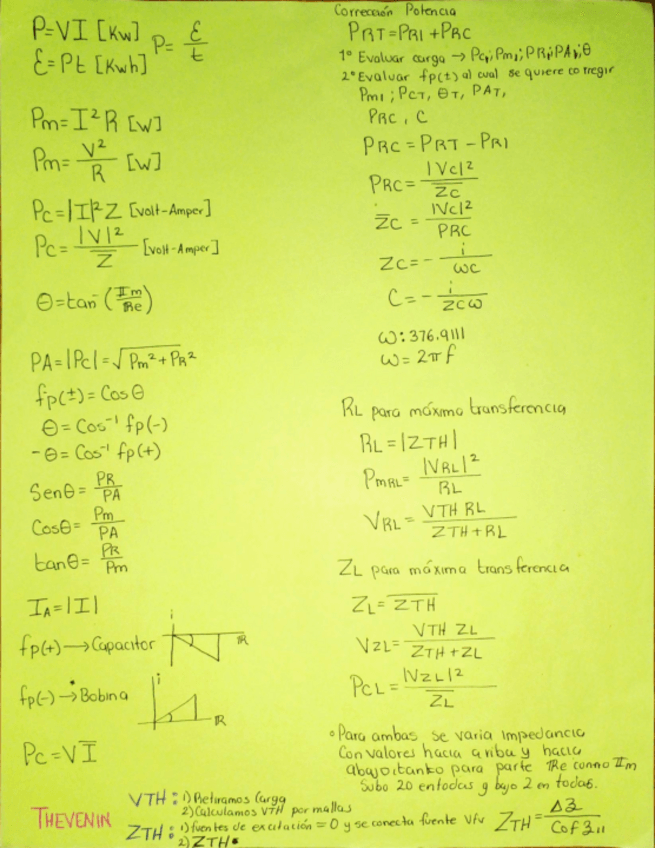 P=VI [Kw]
P= ε/t
ε=Pt [Kwh]
Pm=I² R [w]
Pm= V²/R [w]
Pc=|I|²Z [volt-Amper]
Pc= |V|²/Z̅ [volt-Amper]
θ=tan⁻ (Im/Re)
PA=|Pc|=√Pm²+PR²
fp(±)=Cosθ
θ=Cos⁻¹ fp(-)
-θ=Cos⁻¹ fp(+)
Senθ= PR/PA
Cosθ= Pm/PA
tanθ= PR/Pm
IA=|I|
fp(+)→Capacitor
i
R
fp(-)→Bobina
i
R
Pc=VI̅
Corrección Potencia
PRT=PRI+PRC
1° Evaluar carga → Pc₁; Pm₁; PR₁; PA₁; θ
2° Evaluar fp(±) al cual se quiere corregir
Pm1 ; PCT, θT, PAT,
PRC , C
PRC = PRT - PRI
PRC= |Vc|²/Z̅c
Z̅c = |Vc|²/PRC
Zc=- i/ωc
C=- i/Zcω
ω:376.9111
ω=2πf
RL para máxima transferencia
RL=|ZTH|
PmRL= |VRL|²/RL
VRL= VTH RL/ZTH+RL
ZL para máxima transferencia
ZL= Z̅T̅H̅
VZL= VTH ZL/ZTH+ZL
PCL= |VZL|²/Z̅L
°Para ambas se varia impedancia
Con valores hacia arriba y hacia
abajo;tanto para parte Re como Im
Subo 20 en todas y bajo 2 en todas.
THEVENIN
VTH: 1) Retiramos Carga
2) Calculamos VTH por mallas
ZTH: 1) fuentes de excitación = 0 y se conecta fuente
2) ZTH
ZTH= Δ3/Cof 3,11